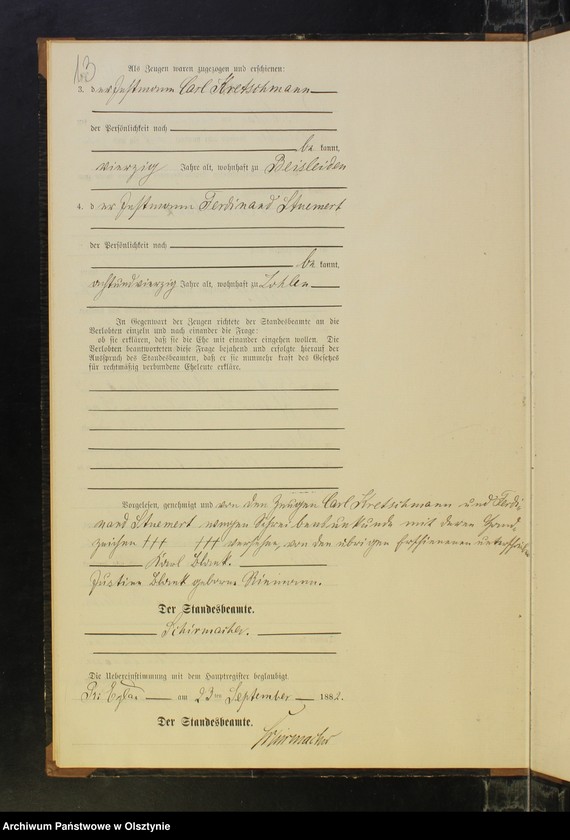 Als Zeugen waren zugezogen und erschienen:
3. der Instmann Carl Kretschmann
der Persönlichkeit nach
be kannt,
vierzig Jahre alt, wohnhaft zu Beisleiden
4. der Instmann Ferdinand Stuemert
der Persönlichkeit nach
be kannt,
achtundvierzig Jahre alt, wohnhaft zu
In Gegenwart der Zeugen richtete der Standesbeamte an die
Verlobten einzeln und nach einander die Frage:
ob sie erklären, daß sie die Ehe mit einander eingehen wollen. Die
Verlobten beantworteten diese Frage bejahend und erfolgte hierauf der
Ausspruch des Standesbeamten, daß er sie nunmehr kraft des Gesetzes
für rechtmäßig verbundene Eheleute erkläre.
Vorgelesen, genehmigt und von den Zeugen Carl Kretschmann und Ferdi-
nand Stuemert wegen Schreibensunkunde mit deren Hand-
zeichen +++ +++ versehen, von den übrigen Erschienenen
Karl Blank.
Justine Blank geborne Riemann.
Der Standesbeamte.
Schirmacher.
Die Uebereinstimmung mit dem Hauptregister beglaubigt.
Pr. Eylau am 23ten September 1882.
Der Standesbeamte.
Schirmacher
Archiwum Państwowe w Olsztynie